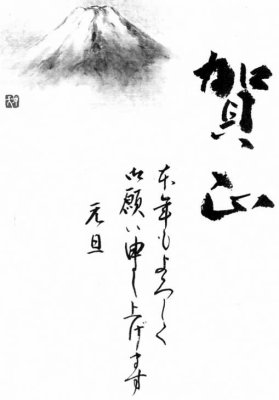 賀正
本年もよろしく
御願い申し上げます
元旦